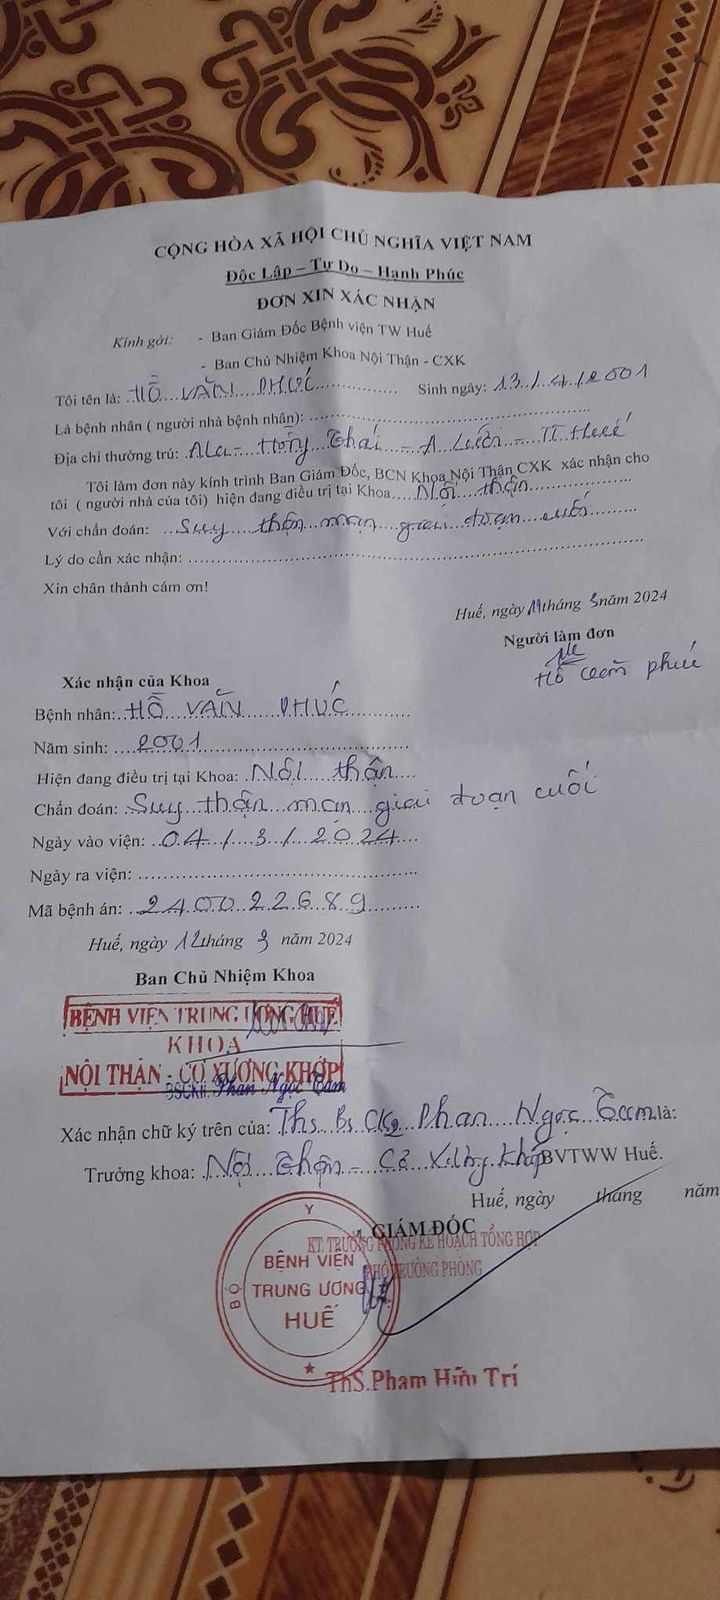 CỘNG HÒA XÃ HỘI CHỦ NGHĨA VIỆT NAM
Độc Lập – Tự Do – Hạnh Phúc
ĐƠN XIN XÁC NHẬN
Kính gởi: - Ban Giám Đốc Bệnh viện TW Huế
- Ban Chủ Nhiệm Khoa Nội Thận - CXK
Tôi tên là: HỒ VĂN PHÚC Sinh ngày: 13/4/2001
Là bệnh nhân ( người nhà bệnh nhân):
Địa chỉ thường trú: Hồng Thái - A Lưới - TT Huế
Tôi làm đơn này kính trình Ban Giám Đốc, BCN Khoa Nội Thận CXK xác nhận cho
tôi ( người nhà của tôi) hiện đang điều trị tại Khoa Nội thận
Với chẩn đoán: Suy thận mạn giai đoạn cuối
Lý do cần xác nhận:
Xin chân thành cám ơn!
Huế, ngày tháng 3 năm 2024
Người làm đơn
Hồ Văn Phúc
Xác nhận của Khoa
Bệnh nhân: HỒ VĂN PHÚC
Năm sinh: 2001
Hiện đang điều trị tại Khoa: Nội thận
Chẩn đoán: Suy thận mạn giai đoạn cuối
Ngày vào viện: 04/3/2024
Ngày ra viện:
Mã bệnh án: 240022689
Huế, ngày 12 tháng 3 năm 2024
Ban Chủ Nhiệm Khoa
BỆNH VIỆN TRUNG ƯƠNG HUẾ
KHOA
NỘI THẬN - CƠ XƯƠNG KHỚP
BSCKII. Phan Ngọc Tam
Xác nhận chữ ký trên của: Ths Bs Ck2 Phan Ngọc Tam là:
Trưởng khoa: Nội Thận - Cơ Xương Khớp BVTWW Huế.
Huế, ngày tháng năm
GIÁM ĐỐC
KT. TRƯỞNG PHÒNG KẾ HOẠCH TỔNG HỢP
PHÓ TRƯỞNG PHÒNG
BỘ Y
BỆNH VIỆN
TRUNG ƯƠNG
HUẾ
ThS.Phạm Hữu Trí